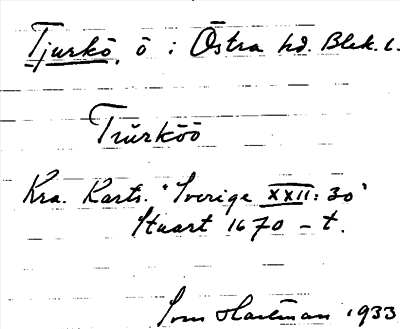 Tjurkö, ö i Östra hd. Blek. l.
Tiurköö
Kra. Karts. "Sverige XXII: 30"
Stuart 1670 - t.
Sven Hartman 1933